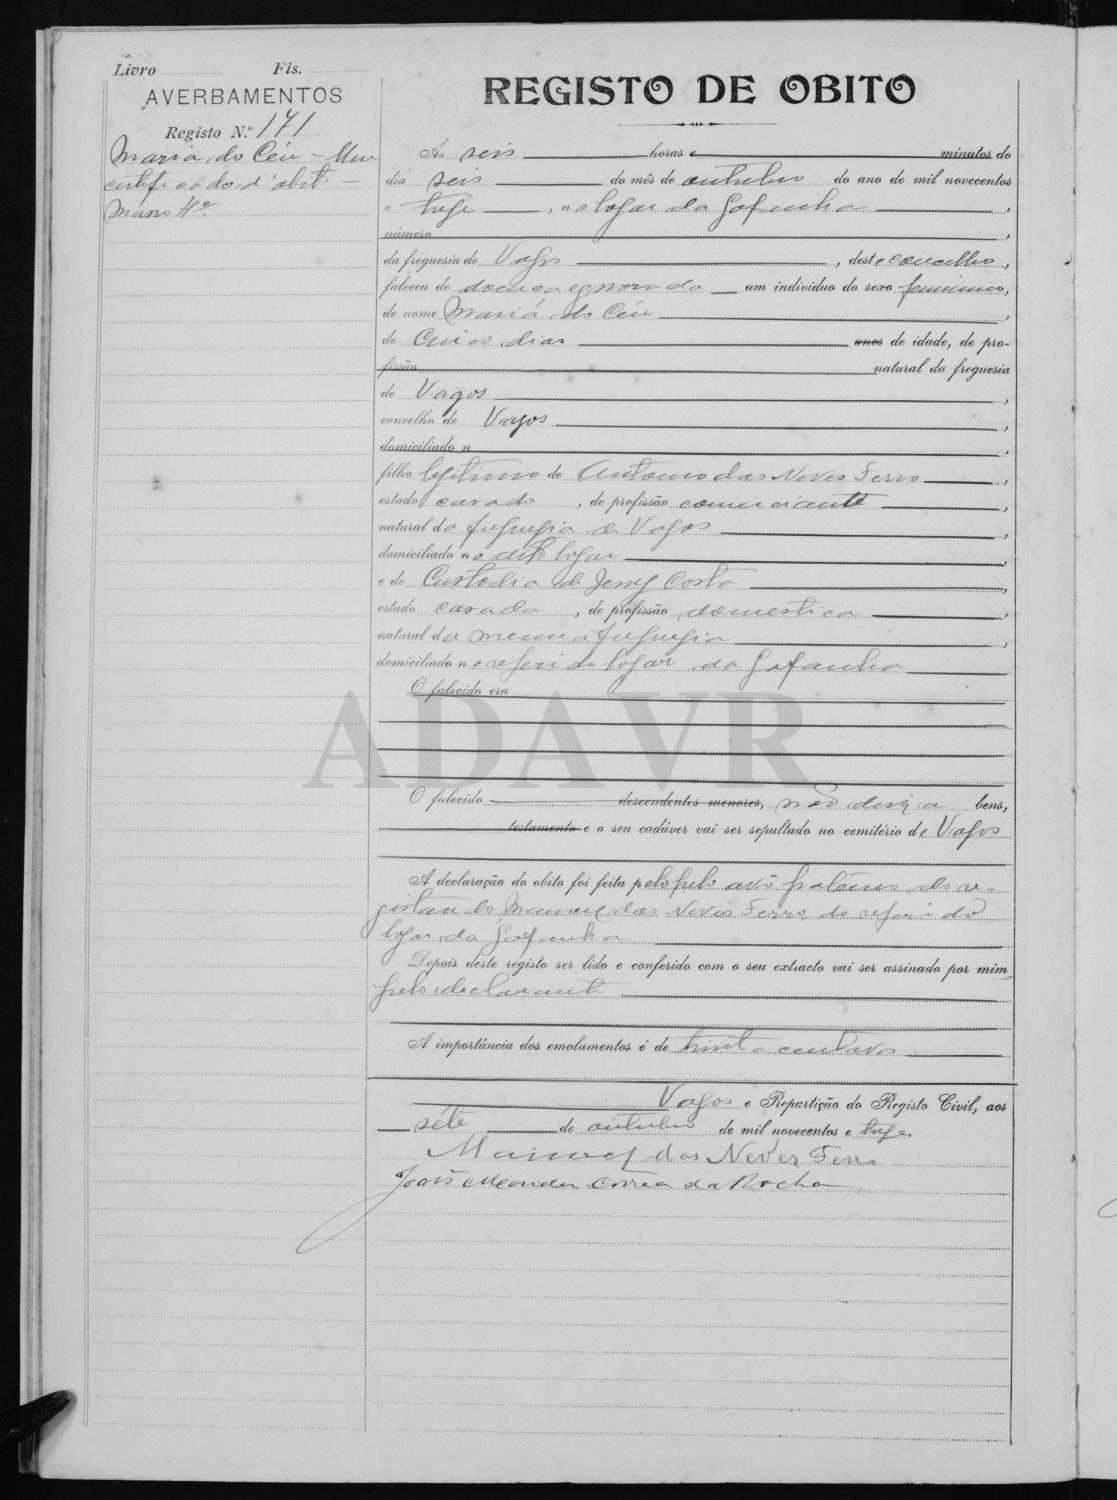 Livro Fls.
AVERBAMENTOS
Registo N.º 171
Maria do Céu - Um
certificado d'obito -
Maço 4º
REGISTO DE OBITO
Ás seis horas e minutos do
dia seis do mês de outubro do ano de mil novecentos
e treze, no logar da Gafanha,
número
da freguesia de Vagos, deste concelho,
faleceu de doença egnorada um individuo do sexo feminino,
de nome Maria do Céu
de cinco dias anos de idade, de pro-
fissão natural da freguesia
de Vagos,
concelho de Vagos,
domiciliado n
filho legitimo de Antonio das Neves Ferro,
estado casado, de profissão comerciante,
natural da freguesia de Vagos,
domiciliado no dito logar,
e de Custodia de Jesus Costa,
estado casada, de profissão domestica,
natural da mesma freguesia
domiciliado no referido logar da Gafanha
O falecido era
ADAVR
O falecido descendentes menores, não deixa bens,
testamento e o seu cadáver vai ser sepultado no cemitério de Vagos
A declaração do obito foi feita pelo pelo avô paterno do re-
gistando Manoel das Neves Ferro, do referido
logar da Gafanha
Depois deste registo ser lido e conferido com o seu extracto vai ser assinado por mim,
pelo declarante
A importância dos emolumentos é de trinta centavos
Vagos e Repartição do Registo Civil, aos
séte de outubro de mil novecentos e treze.
Manoel das Neves Ferro
João Mendes Corrêa da Rocha